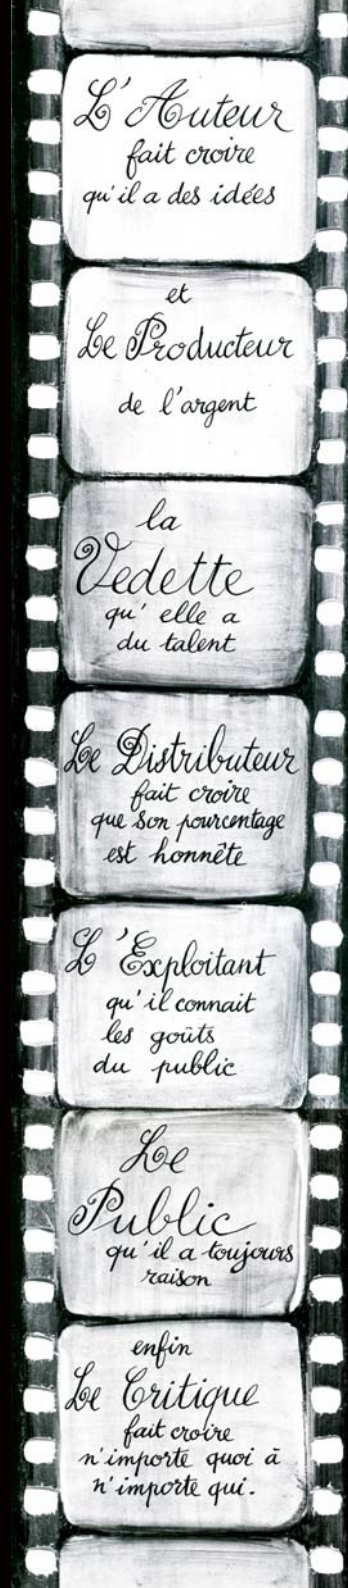 L'Auteur
fait croire
qu'il a des idées
et
Le Producteur
de l'argent
la
Vedette
qu'elle a
du talent
Le Distributeur
fait croire
que son pourcentage
est honnête
L'Exploitant
qu'il connait
les goûts
du public
Le
Public
qu'il a toujours
raison
enfin
Le Critique
fait croire
n'importe quoi à
n'importe qui.